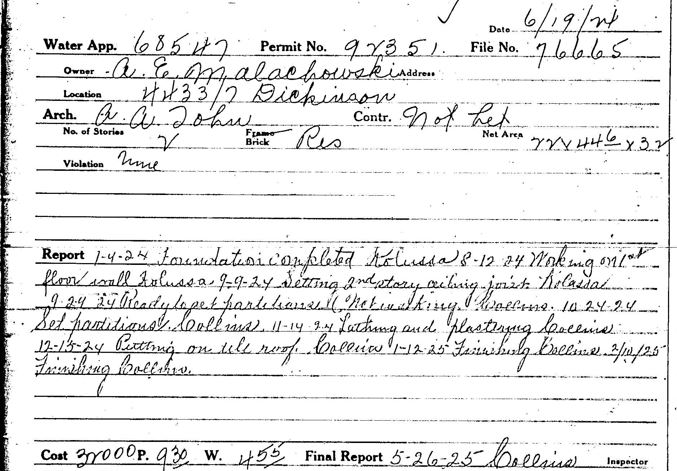 Date 6/19/24
Water App. 68547 Permit No. 92351. File No. 76665
Owner A. E. Malachowski Address
Location 4433/7 Dickinson
Arch. A. A. John Contr. Not Let
No. of Stories 2 Frame Brick Res Net Area 22 x 44 6 x 32
Violation None
Report 1-4-24 Foundation completed Kolussa 8-12 24 Working on 1st
floor wall Kolussa 9-9-24 Setting 2nd story ceiling joist Kolassa
9-24 24 Ready to set partitions (Not working. Collins. 10 24-24
Set partitions. Collins 11-14 24 Lathing and plastering Collins
12-15-24 Putting on tile roof. Collins 1-12-25 Finishing Collins. 2/10/25
Finishing Collins.
Cost 32000 P. 930 W. 455 Final Report 5-26-25 Collins Inspector